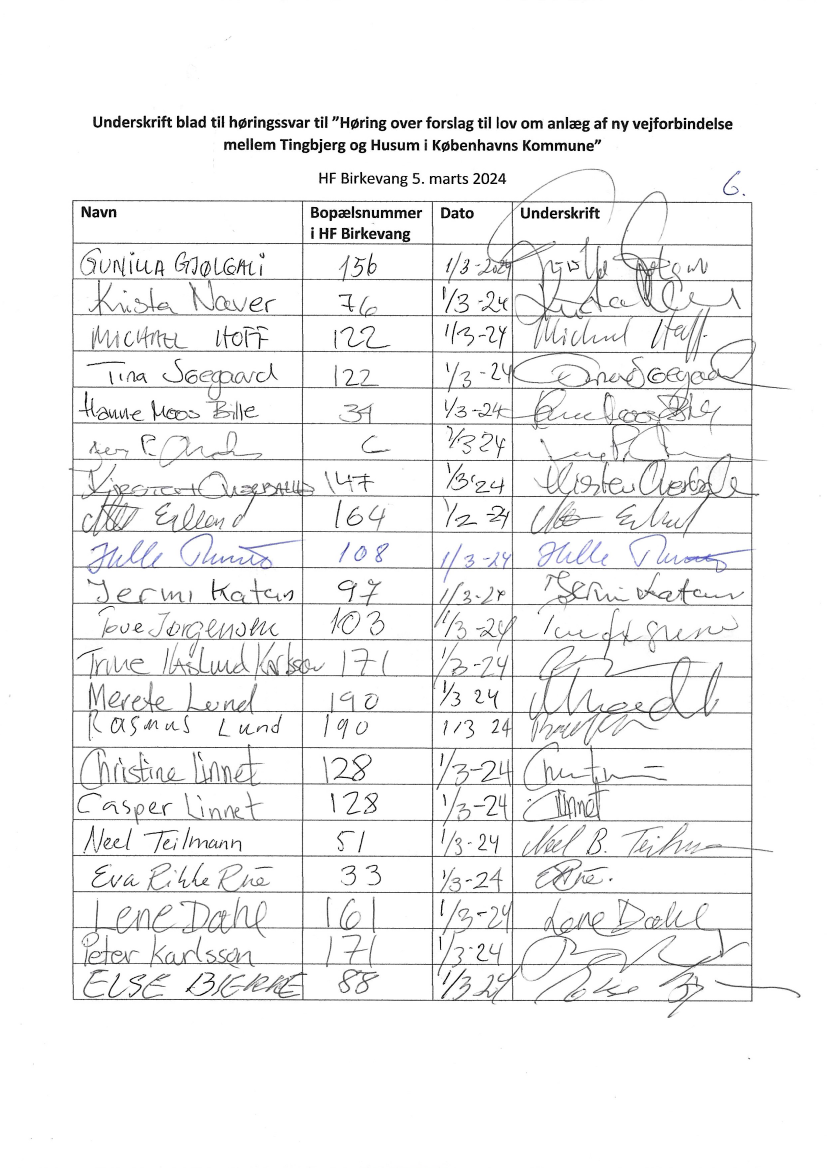 Underskrift blad til høringssvar til ”Høring over forslag til lov om anlæg af ny vejforbindelse
mellem Tingbjerg og Husum i Københavns Kommune”
HF Birkevang 5. marts 2024
6.
Navn Bopælsnummer i HF Birkevang Dato Underskrift
GUNILLA 156 1/3-2024
Krista Naver 76 1/3-24
MICHAEL HOFF 122 1/3-24 Michael Hoff
Tina Soegaard 122 1/3-24 Tina Soegaard
Hanne Moos Bille 34 1/3-24
1/3 24
147 1/3 24
164 1/2 24
Helle 108 1/3-24 Helle
Jermi Katan 97 1/3-24 Jermi Katan
Tove Jørgensen 103 1/3-24
Trine Haslund Karlsson 171 1/3-24
Merete Lund 190 1/3 24
Rasmus Lund 190 1/3 24
Christine Linnet 128 1/3-24
Casper Linnet 128 1/3-24 Linnet
Neel Teilmann 51 1/3-24 Neel B. Teilmann
Eva Rikke 33 1/3-24
Lene Dahl 161 1/3-24 Lene Dahl
Peter Karlsson 171 1/3-24
ELSE BJERRE 88 1/3 24 Else